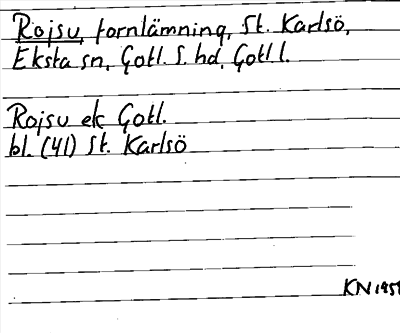 Rojsu, fornlämning, St. Karlsö,
Eksta sn, Gotl. S. hd, Gotl l.
Rojsu ek Gotl.
bl. (41) St. Karlsö
KN